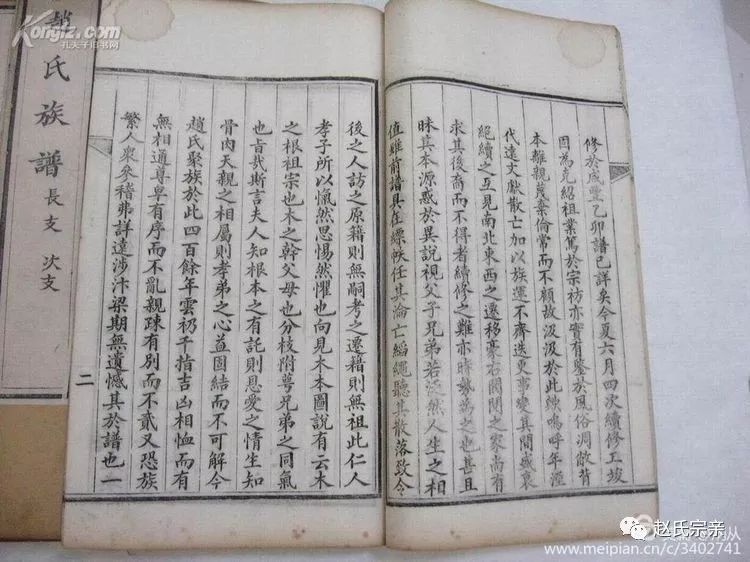 修於咸豐乙卯譜已詳矣今夏六月四次續修工竣
因為克紹祖業篤於宗祊亦實有鑒於風俗凋敝背
本離親蔑棄倫常而不顧故汲汲於此續嗚呼年湮
代遠文獻散亡加以族運不齊迭更事變其間盛衰
絕續之互見南北東西之遷移豪右閥閱之家尚有
求其後裔而不得者續修之難亦時勢為之也吾且
昧其本源惑於異說視父子兄弟若泛然人生之相
值雖前譜具在縹帙任其淪亡緗繩聽其散落致令
後之人訪之原籍則無嗣考之遷籍則無祖此仁人
孝子所以愾然思惕然懼也向見木本圖說有云木
之根祖宗也木之幹父母也分枝附萼兄弟之同氣
也旨哉斯言夫人知根本之有託則恩愛之情生知
骨肉天親之相屬則孝弟之心益固結而不可解今
趙氏聚族於此四百餘年雲礽千指吉凶相恤而有
無相通尊卑有序而不亂親疎有別而不貳又恐族
繁人衆參稽弗詳遠涉汴梁期無遺憾其於譜也一
二
趙氏族譜 長支 次支
Kongfz.com
孔夫子旧书网
赵氏宗亲
www.meipian.cn/c/3402741